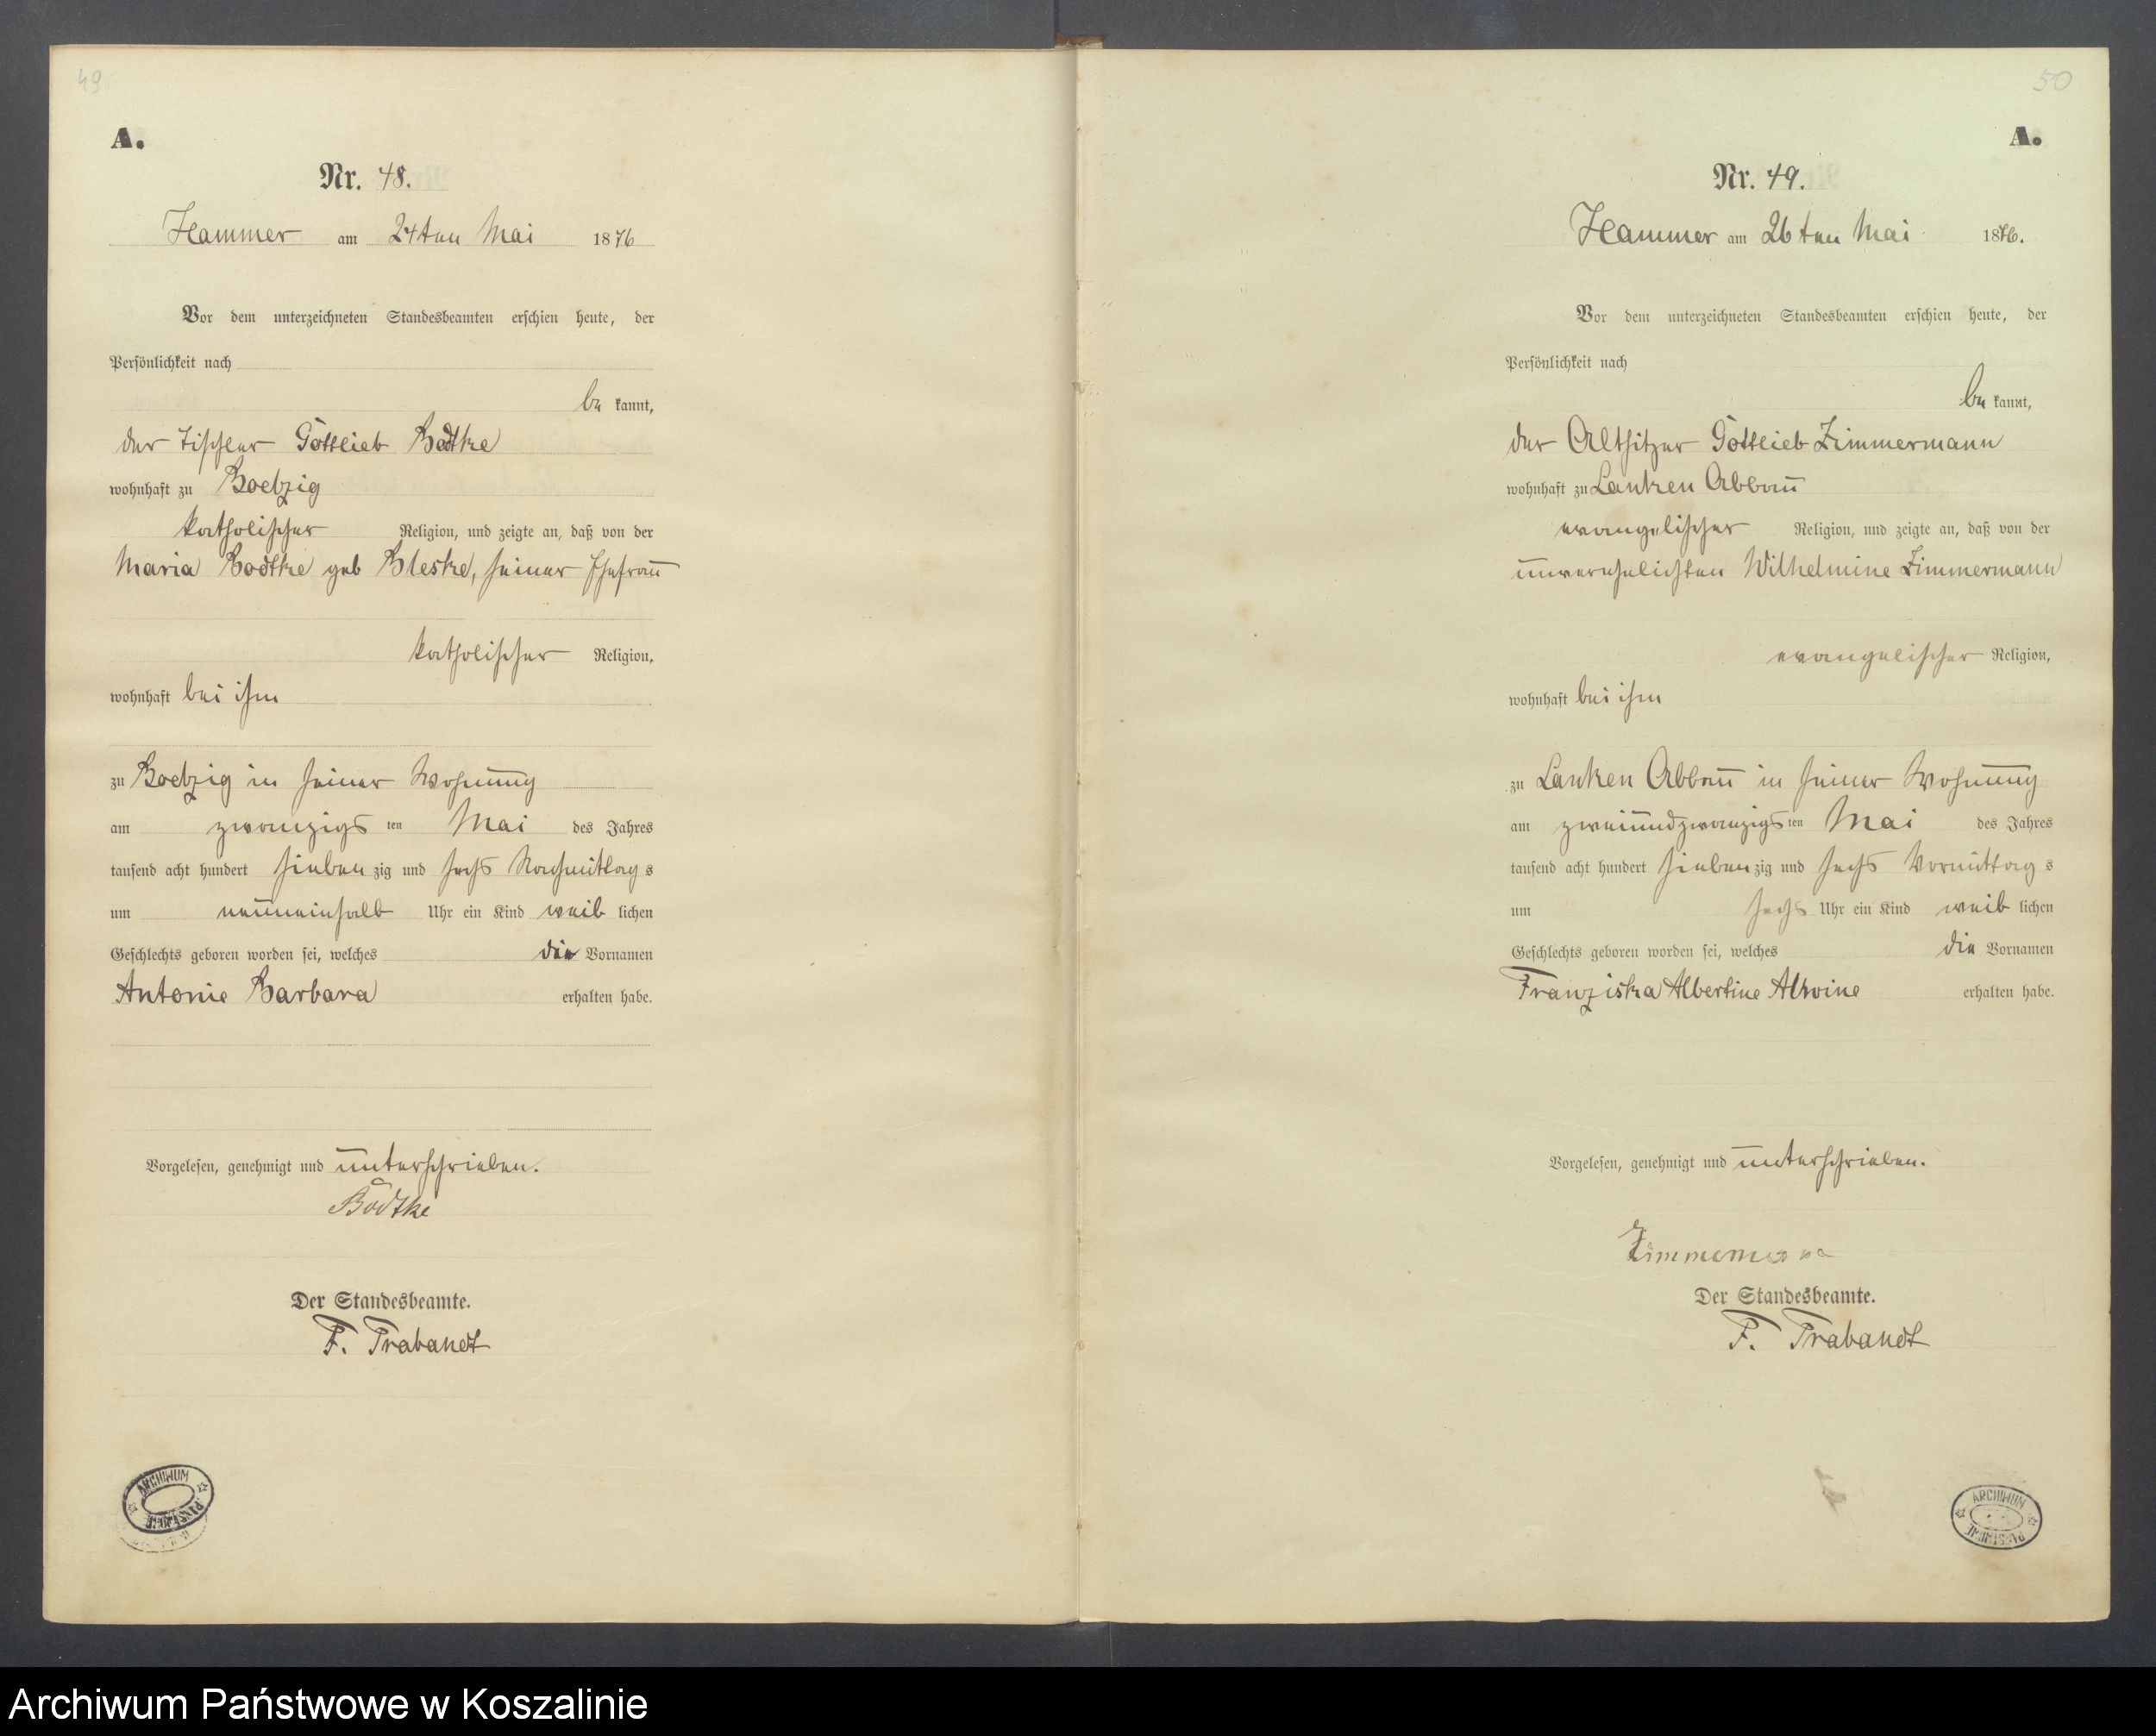 49
A.
Nr. 48.
Hammer am 24ten Mai 1876
Vor dem unterzeichneten Standesbeamten erschien heute, der
Persönlichkeit nach
be kannt,
der Tischler Gottlieb Bodtke
wohnhaft zu Boetzig
katholischer Religion, und zeigte an, daß von der
Maria Bodtke geb Bleske, seiner Ehefrau
katholischer Religion,
wohnhaft bei ihm
zu Boetzig in seiner Wohnung
am zwanzigs ten Mai des Jahres
tausend acht hundert sieben zig und sechs Nachmittag s
um neuneinhalb Uhr ein Kind weib lichen
Geschlechts geboren worden sei, welches die Vornamen
Antonie Barbara erhalten habe.
Vorgelesen, genehmigt und unterschrieben.
Bodtke
Der Standesbeamte.
F. Trabandt
ARCHIWUM PAŃSTWOWE
50
A.
Nr. 49.
Hammer am 26ten Mai 1876.
Vor dem unterzeichneten Standesbeamten erschien heute, der
Persönlichkeit nach
be kannt,
der Altsitzer Gottlieb Zimmermann
wohnhaft zu Lanken Abbau
evangelischer Religion, und zeigte an, daß von der
unverehelichten Wilhelmine Zimmermann
evangelischer Religion,
wohnhaft bei ihm
zu Lanken Abbau in seiner Wohnung
am zweiundzwanzigs ten Mai des Jahres
tausend acht hundert sieben zig und sechs Vormittag s
um sechs Uhr ein Kind weib lichen
Geschlechts geboren worden sei, welches die Vornamen
Franziska Albertine Alwine erhalten habe.
Vorgelesen, genehmigt und unterschrieben.
Der Standesbeamte.
F. Trabandt
ARCHIWUM PAŃSTWOWE
Archiwum Państwowe w Koszalinie